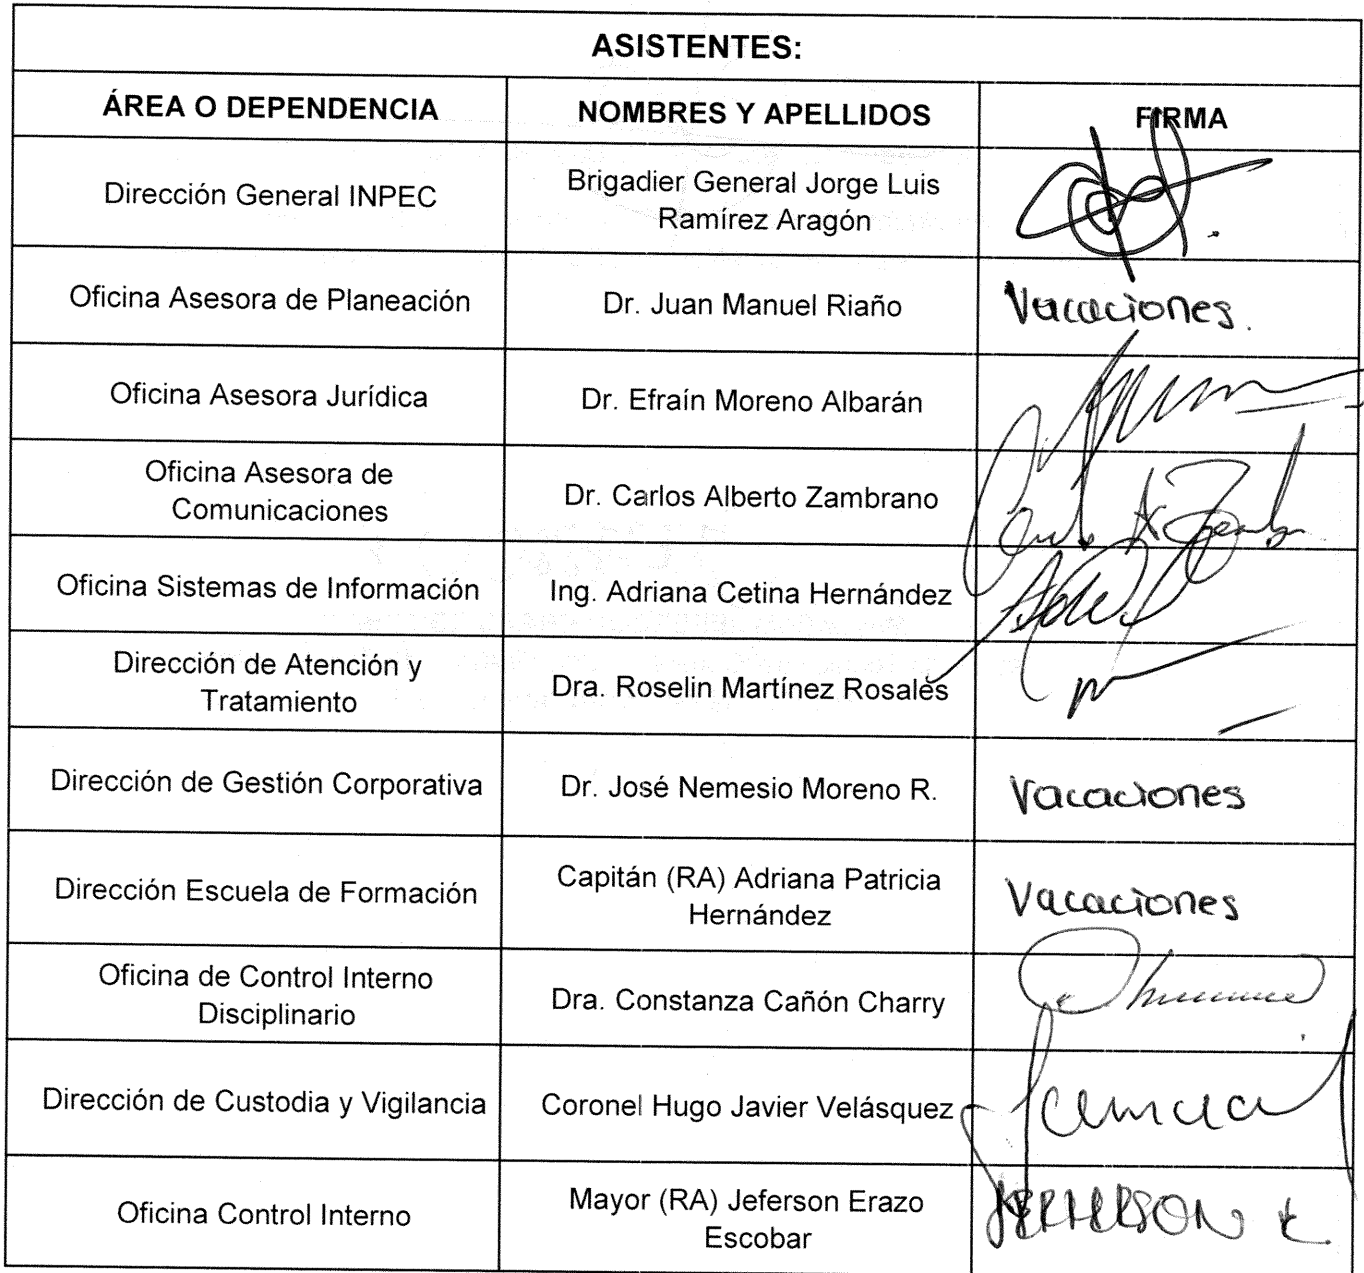 ASISTENTES:
ÁREA O DEPENDENCIA
NOMBRES Y APELLIDOS
FIRMA
Dirección General INPEC
Brigadier General Jorge Luis
Ramírez Aragón
Oficina Asesora de Planeación
Dr. Juan Manuel Riaño
Vacaciones.
Oficina Asesora Jurídica
Dr. Efraín Moreno Albarán
Oficina Asesora de
Comunicaciones
Dr. Carlos Alberto Zambrano
Oficina Sistemas de Información
Ing. Adriana Cetina Hernández
Dirección de Atención y
Tratamiento
Dra. Roselin Martínez Rosales
Dirección de Gestión Corporativa
Dr. José Nemesio Moreno R.
Vacaciones
Dirección Escuela de Formación
Capitán (RA) Adriana Patricia
Hernández
Vacaciones
Oficina de Control Interno
Disciplinario
Dra. Constanza Cañón Charry
Dirección de Custodia y Vigilancia
Coronel Hugo Javier Velásquez
Oficina Control Interno
Mayor (RA) Jeferson Erazo
Escobar